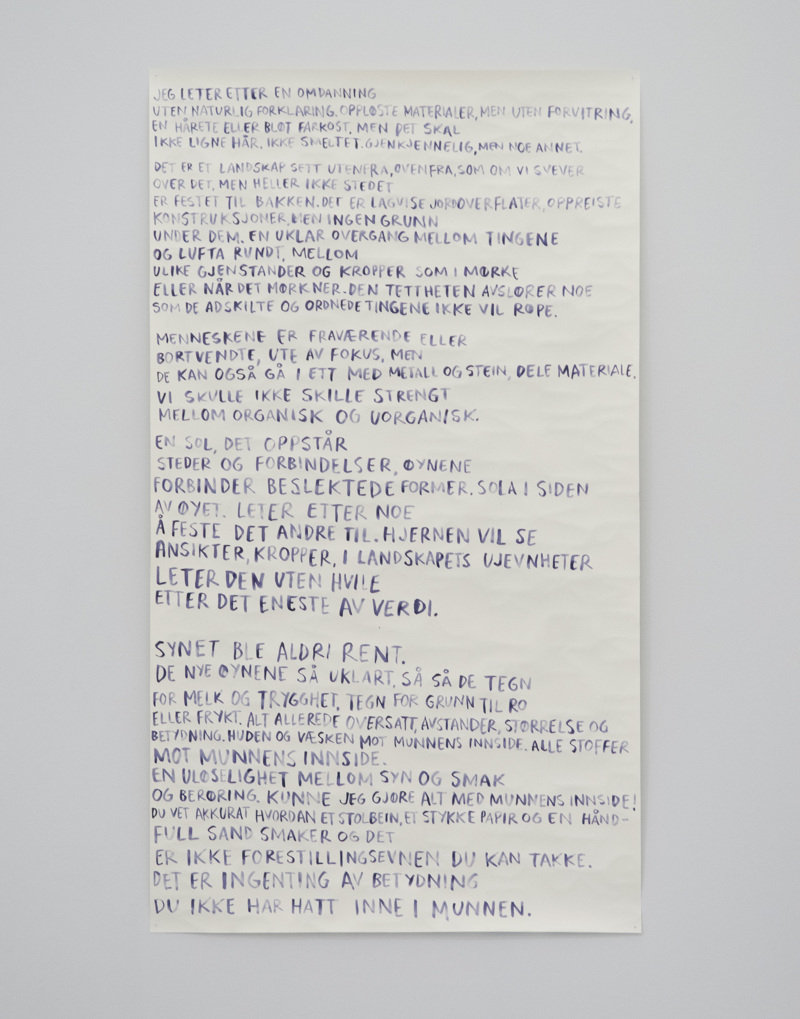 JEG LETER ETTER EN OMDANNING
UTEN NATURLIG FORKLARING. OPPLØSTE MATERIALER, MEN UTEN FORVITRING,
EN HÅRETE ELLER BLØT FARKOST, MEN DET SKAL
IKKE LIGNE HÅR, IKKE SMELTET. GJENKJENNELIG, MEN NOE ANNET.
DET ER ET LANDSKAP SETT UTENFRA, OVENFRA, SOM OM VI SVEVER
OVER DET, MEN HELLER IKKE STEDET
ER FESTET TIL BAKKEN. DET ER LAGVISE JORDOVERFLATER, OPPREISTE
KONSTRUKSJONER, MEN INGEN GRUNN
UNDER DEM. EN UKLAR OVERGANG MELLOM TINGENE
OG LUFTA RUNDT, MELLOM
ULIKE GJENSTANDER OG KROPPER SOM I MØRKE
ELLER NÅR DET MØRKNER. DEN TETTHETEN AVSLØRER NOE
SOM DE ADSKILTE OG ORDNEDE TINGENE IKKE VIL RØPE.
MENNESKENE ER FRAVÆRENDE ELLER
BORTVENDTE, UTE AV FOKUS, MEN
DE KAN OGSÅ GÅ I ETT MED METALL OG STEIN, DELE MATERIALE.
VI SKULLE IKKE SKILLE STRENGT
MELLOM ORGANISK OG UORGANISK.
EN SOL, DET OPPSTÅR
STEDER OG FORBINDELSER, ØYNENE
FORBINDER BESLEKTEDE FORMER. SOLA I SIDEN
AV ØYET. LETER ETTER NOE
Å FESTE DET ANDRE TIL. HJERNEN VIL SE
ANSIKTER, KROPPER, I LANDSKAPETS UJEVNHETER
LETER DEN UTEN HVILE
ETTER DET ENESTE AV VERDI.
SYNET BLE ALDRI RENT.
DE NYE ØYNENE SÅ UKLART, SÅ SÅ DE TEGN
FOR MELK OG TRYGGHET, TEGN FOR GRUNN TIL RO
ELLER FRYKT. ALT ALLEREDE OVERSATT, AVSTANDER, STØRRELSE OG
BETYDNING. HUDEN OG VÆSKEN MOT MUNNENS INNSIDE. ALLE STOFFER
MOT MUNNENS INNSIDE.
EN ULØSELIGHET MELLOM SYN OG SMAK
OG BERØRING. KUNNE JEG GJØRE ALT MED MUNNENS INNSIDE!
DU VET AKKURAT HVORDAN ET STOLBEIN, ET STYKKE PAPIR OG EN HÅND-
FULL SAND SMAKER OG DET
ER IKKE FORESTILLINGSEVNEN DU KAN TAKKE.
DET ER INGENTING AV BETYDNING
DU IKKE HAR HATT INNE I MUNNEN.